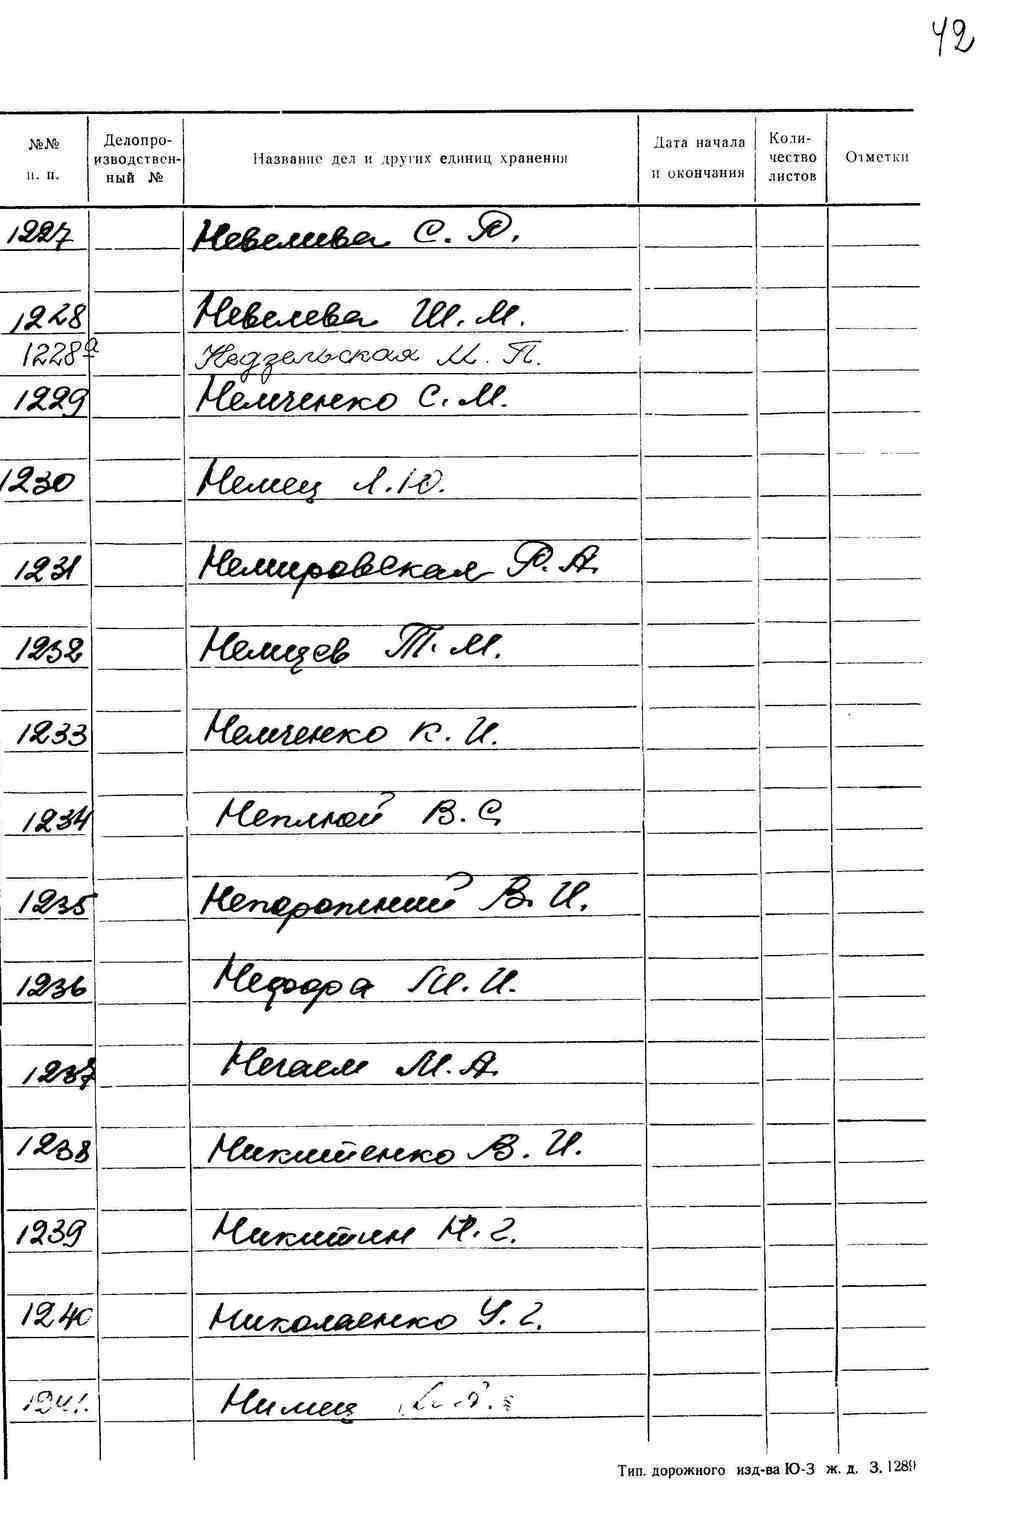 42
№№ п. п. Делопроизводствен-ный № Название дел и других единиц хранения Дата начала и окончания Коли-чество листов Отметки
1227 Невелева С. Р.
1228 Невелева Ш. М.
1228а Недзельская М. П.
1229 Немченко С. М.
1230 Немец Л. Ю.
1231 Немировская Р. А.
1232 Немцев Т. М.
1233 Немченко К. И.
1234 Неплюй В. С.
1235 Непорожний В. И.
1236 Нефора М. И.
1237 Нечаев М. А.
1238 Никитенко В. И.
1239 Никитин Н. Г.
1240 Николаенко У. Г.
1241. Нимец
Тип. дорожного изд-ва Ю-З ж. д. З. 1280